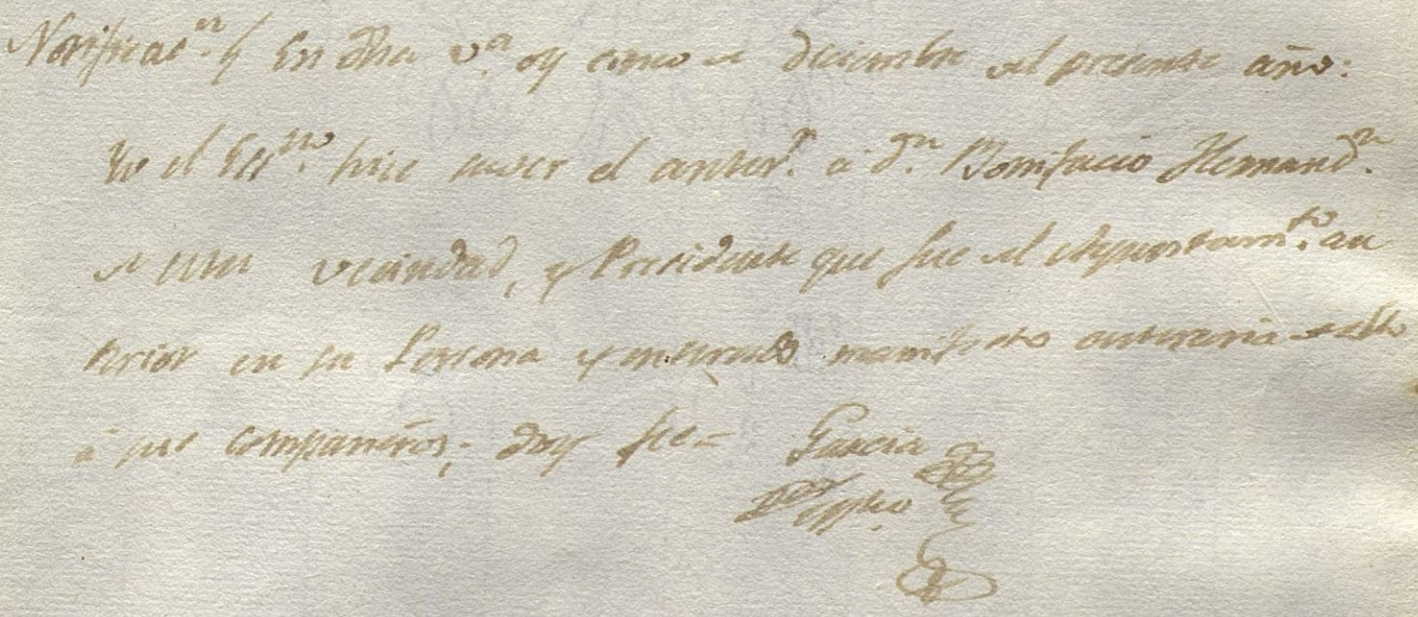 Notificac.n / En dha v.a oy cinco de Diciembre del presente año:
Yo el Ess.no hice saver el anter.r a D.n Bonifacio Hernand.n
de esta vecindad, y Presidente que fue del Ayuntam.to an
terior en su Persona y enterado manifesto enteraria de ello
á sus compañeros; doy fee=
Garcia